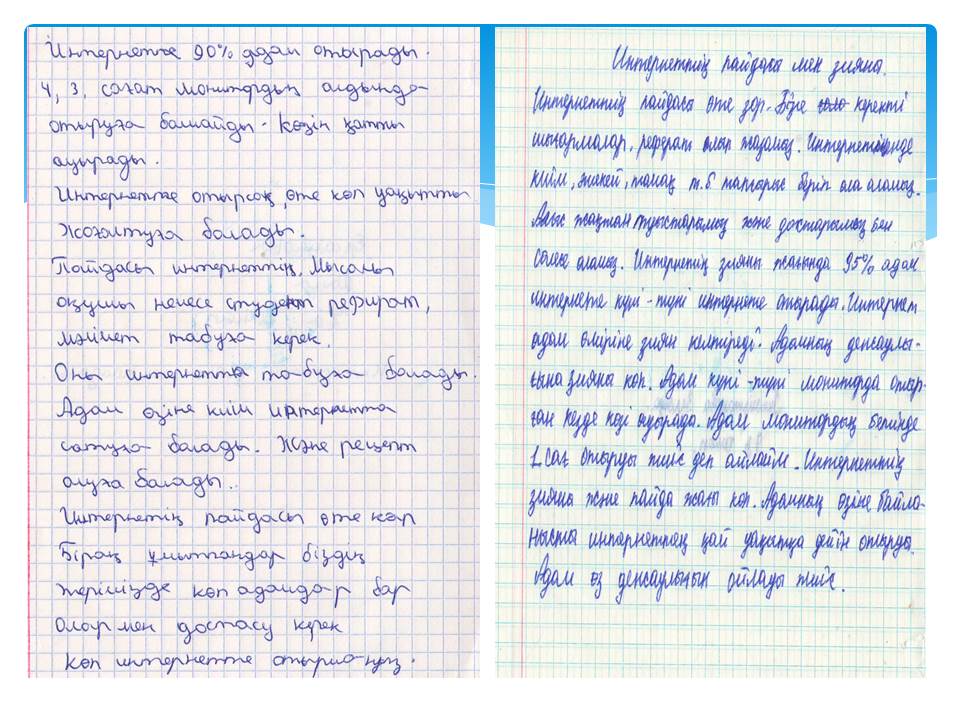 Интернетте 90% адам отырады.
4, 3. сағат монитордың алдында
отыруға балмайды. Көзін қатты
ауырады.
Интернетте отырсақ, өте көп уақытты
жоғалтуға балады.
Пайдасы интернеттің. Мысалы
оқушы немесе студент реферат,
мәлімет табуға керек.
Оны интернетта табуға балады.
Адам өзіне киім интернетта
сатуға балады. Және рецепт
алуға балады.
Интернетің пайдасы өте көп
Бірақ ұмытпаңдар біздің
жерімізде көп адамдар бар
Олармен достасу керек
Көп интернетте отырмаңыз.
Интернеттің пайдасы мен зияны.
Интернеттің пайдасы өте зор. Бізге керекті
шығармалар, реферат алып жазамыз. Интернетіңде
киім, тамақ т.б тапсырыс беріп ала аламыз.
Алыс жақтан туыстарымыз және достарымыз бен
сөйлесе аламыз. Интернетің зияны жағында 95% адам
интернете күні-түні интернете отырады. Интернет
адам өміріне зиян келтіреді. Адамның денсаулы-
ғына зияны көп. Адам күні-түні мониторда отыр-
ған кезде көзі ауырада. Адам монитордың бетінде
1 сағ отыруы тиіс деп ойлайм. Интернеттің
зияны және пайда жағы көп. Адамның өзіне байла-
нысты интернеттең қай уақытқа дейін отыруы.
Адам өз денсаулығын ойлады тиіс.